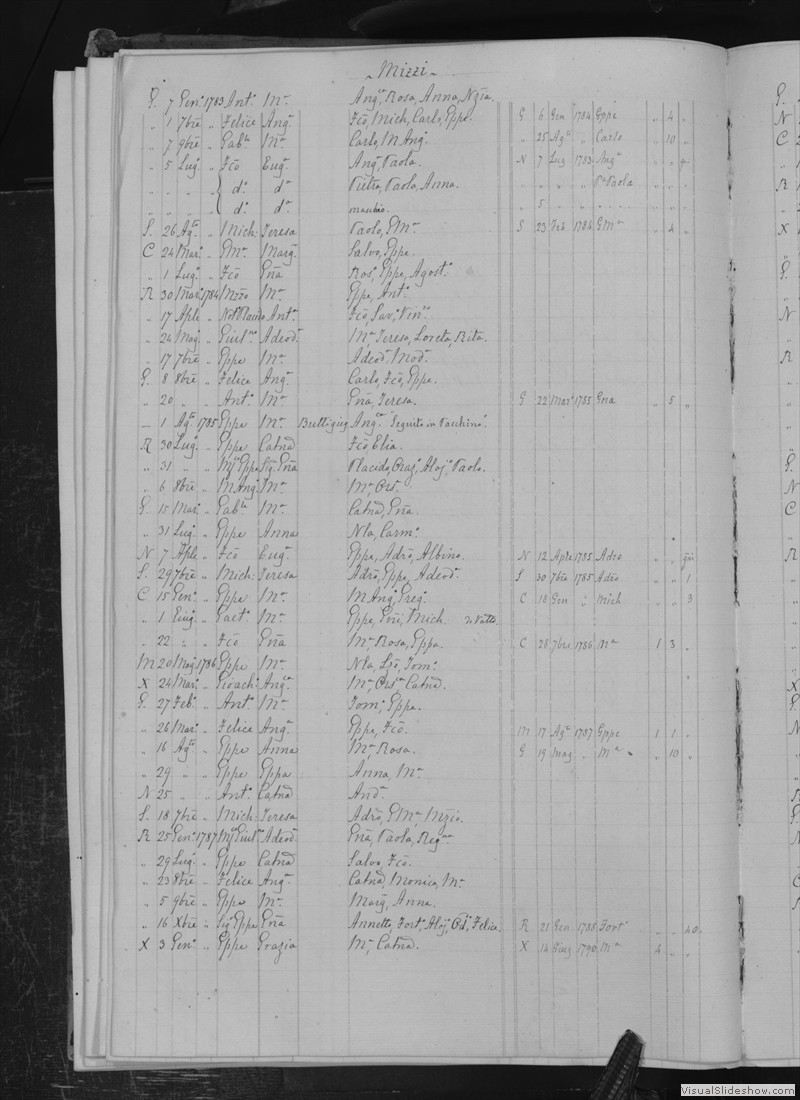 Mizzi
G. 7 Gen.o 1783 Ant.o M.a Ang.a, Rosa, Anna, Nzia.
„ 1 7bre „ Felice Ang.a Fco, Mich, Carlo, Gppe. G 6 Gen 1784 Gppe „ 4 „
„ 7 9bre „ Gab.le M.a Carlo, M Ang. „ 25 Ag.o „ Carlo „ 10 „
„ 5 Lug. „ Fco Eug.a Ang.o, Paola. N 7 Lug 1783 Ang.o „ „
„ „ „ „ d.o d.a Pietro, Paolo, Anna. „ „ „ „ Paola
„ „ „ „ d.o d.a „ 5 „ „
S. 26 Ag.to „ Mich: Teresa Paolo, GM.a S 23 Feb 1784 GM.a „ 4 „
C 24 Mar. „ GM.a Marg.a Salvo, Gppe.
„ 1 Lug.o „ Fco Gna Ros.a, Gppe, Agost.o
R 30 Mar. 1784 Nzzo M.a Gppe, Ant.o
„ 17 Aple „ Ant.a Fco, Sav.o, Vin.o
„ 24 Mag. „ Giul.no Adeod.a M.a, Teresa, Loreta, Rita.
„ 17 7bre „ Gppe M.a Adeod.a, Mod.a
G. 8 8bre „ Felice Ang.a Carlo, Fco, Gppe.
„ 20 „ „ Ant.o M.a Gna, Teresa. G 22 Mar.o 1785 Gna „ 5 „
— 1 Ag.to 1785 Gppe M.a Buttigieg Ang.ca "Seguito in Pacchino".
R 30 Lug.o „ Gppe Catnd Fco, Elia.
„ 31 „ „ Gppe Sig. Gna Placido, Oraz.o, Aloj.o, Paolo.
„ 6 8bre „ M Ang. M.a M.a, Ors.
G. 15 Mar. „ Gab.le M.a Catnd, Gna.
„ 31 Lug. „ Gppe Anna Nla, Carm.o
N 7 Aple „ Fco Eug.a Gppe, Adro, Albino. N 12 Aple 1785 Adro „ „
S. 29 7bre „ Mich: Teresa Adro, Gppe, Adeod.a S 30 7bre 1785 Adro „ „ 1
C 15 Gen.o „ Gppe M.a M Ang., Greg.o C 18 Gen „ Mich „ „ 3
„ 1 Giug. „ Gaet.o M.a Gppe, Gni, Mich
„ 22 „ „ Fco Gna M.a, Rosa, Gppa. C 28 7bre 1786 M.a 1 3 „
M 20 Mag. 1786 Gppe M.a Nla, Lzo, Tom.o
X 24 Mar. „ Gioach: Ang.a M.a, Ors.la, Catnd.
G. 27 Feb. „ Ant.o M.a Tom.o, Gppe.
„ 26 Mar. „ Felice Ang.a Gppe, Fco. M 17 Ag.o 1787 Gppe 1 1 „
„ 16 Ag.to „ Gppe Anna M.a, Rosa. G 19 Mag „ M.a „ 10 „
„ 29 „ „ Gppe Gppa Anna, M.a
N 25 „ „ Ant.o Catnd And.a
S. 18 7bre „ Mich: Teresa Adro, GM.a, Nzio.
R 25 Gen.o 1787 Giul.no Adeod.a Gna, Paola, Reg.na
„ 29 Lug. „ Gppe Catnd Salvo, Fco.
„ 23 8bre „ Felice Ang.a Catnd, Monica, M.a
„ 5 9bre „ Gppe M.a Marg.a, Anna.
„ 16 Xbre „ Sig. Gppe Gna Annetto, Fort.o, Aloj.o, Felice. R 21 Gen 1788 Fort.o „ „ 40
X 3 Gen.o „ Gppe Grazia M.a, Catnd. X 14 Giug 1790 M.a 4 „ „
VisualSlideshow.com